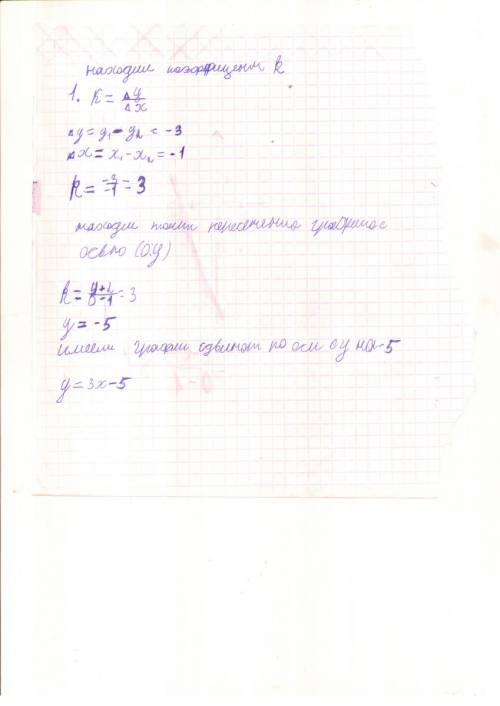 находим коэффициент k
1. k = Δy/Δx
Δy = y₁ - y₂ = -3
Δx = x₁ - x₂ = -1
k = -3/-1 = 3
находим точки пересечения графика с
осью (Oy)
k = y+2/0-1 = 3
y = -5
имеем график сдвинут по оси oy на -5
y = 3x - 5